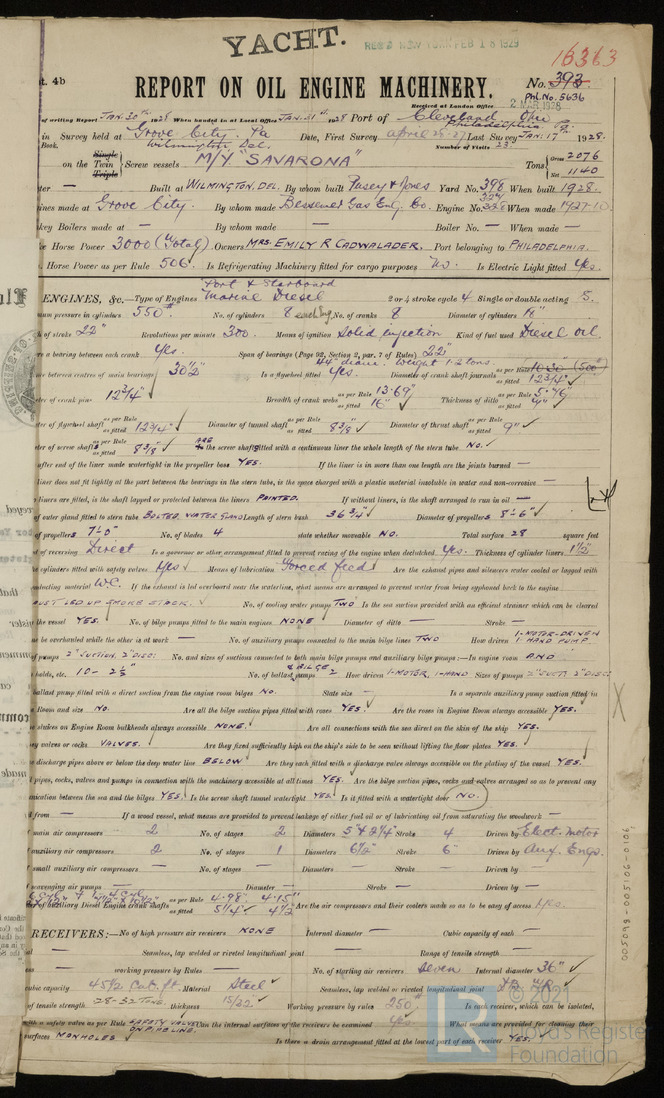 YACHT.
16363
t. 4b
REPORT ON OIL ENGINE MACHINERY.
No. 393
Phl. No. 5636
Received at London Office 2 MAR 1928
of writing Report JAN. 30th 1928 When handed in at Local Office JAN. 31st 1928 Port of Cleveland Ohio
Philadelphia Pa.
in Survey held at Grove City. Pa Date, First Survey Last Survey JAN: 17 1928.
Book. Wilmington Del. Number of Visits 23
on the Single Twin Triple Screw vessels M/Y "SAVARONA" Tons Gross 2076 Net 1140
ter — Built at WILMINGTON, DEL. By whom built Pusey & Jones Yard No. 398 When built 1928.
ines made at Grove City. By whom made Bessemer Gas Eng. Co. Engine No. When made
key Boilers made at — By whom made — Boiler No. — When made —
e Horse Power 3000 (Total) Owners MRS. EMILY R CADWALADER. Port belonging to PHILADELPHIA.
Horse Power as per Rule 506. Is Refrigerating Machinery fitted for cargo purposes No. Is Electric Light fitted Yes.
Port & Starboard
ENGINES, &c.—Type of Engines Marine Diesel 2 or 4 stroke cycle 4 Single or double acting S.
mum pressure in cylinders 550 No. of cylinders 8 each eng. No. of cranks 8 Diameter of cylinders
h of stroke 22" Revolutions per minute 300. Means of ignition Solid injection Kind of fuel used Diesel oil
re a bearing between each crank Yes. Span of bearings (Page 92, Section 2, par. 7 of Rules) 22"
44" diam. Weight 1.2 tons
ce between centres of main bearings 30 1/2" Is a flywheel fitted Yes. Diameter of crank shaft journals as per Rule as fitted 12 3/4"
eter of crank pins 12 3/4" Breadth of crank webs as per Rule 13.69" as fitted 16" Thickness of ditto as per Rule 5.46" as fitted 9"
er of flywheel shaft as per Rule as fitted 12 3/4" Diameter of tunnel shaft as per Rule as fitted 8 3/8 Diameter of thrust shaft as per Rule as fitted 9"
eter of screw shafts as per Rule as fitted 8 3/8" ARE the screw shafts fitted with a continuous liner the whole length of the stern tube NO.
after end of the liner made watertight in the propeller boss YES. If the liner is in more than one length are the joints burned —
liner does not fit tightly at the part between the bearings in the stern tube, is the space charged with a plastic material insoluble in water and non-corrosive —
liners are fitted, is the shaft lapped or protected between the liners PAINTED. If without liners, is the shaft arranged to run in oil —
of outer gland fitted to stern tube BOLTED, WATER GLAND Length of stern bush 36 3/4" Diameter of propellers 8'-6"
of propellers 7'-0" No. of blades 4 state whether moveable NO. Total surface 28 square feet
of reversing Direct Is a governor or other arrangement fitted to prevent racing of the engine when declutched Yes. Thickness of cylinder liners 1 1/2"
e cylinders fitted with safety valves Yes Means of lubrication Forced feed Are the exhaust pipes and silencers water cooled or lagged with
onducting material W.C. If the exhaust is led overboard near the waterline, what means are arranged to prevent water from being syphoned back to the engine
UST LED UP SMOKE STACK. No. of cooling water pumps TWO Is the sea suction provided with an efficient strainer which can be cleared
the vessel YES. No. of bilge pumps fitted to the main engines NONE Diameter of ditto — Stroke —
ne be overhauled while the other is at work — No. of auxiliary pumps connected to the main bilge lines TWO How driven 1-MOTOR-DRIVEN 1-HAND PUMP
of pumps 2" SUCTION. 2" DISC: No. and sizes of suctions connected to both main bilge pumps and auxiliary bilge pumps:—In engine room AND
holds, etc. 10 - 2 1/2" No. of ballast & BILGE pumps 2 How driven 1-MOTOR, 1-HAND Sizes of pumps 2" SUCT. 2" DISC:
ballast pump fitted with a direct suction from the engine room bilges NO. State size — Is a separate auxiliary pump suction fitted in
e Room and size NO. Are all the bilge suction pipes fitted with roses YES. Are the roses in Engine Room always accessible YES.
e sluices on Engine Room bulkheads always accessible NONE. Are all connections with the sea direct on the skin of the ship YES.
ey valves or cocks VALVES. Are they fixed sufficiently high on the ship's side to be seen without lifting the floor plates YES.
e discharge pipes above or below the deep water line BELOW Are they each fitted with a discharge valve always accessible on the plating of the vessel YES.
l pipes, cocks, valves and pumps in connection with the machinery accessible at all times YES. Are the bilge suction pipes, cocks and valves arranged so as to prevent any
unication between the sea and the bilges YES. Is the screw shaft tunnel watertight YES. Is it fitted with a watertight door NO.
d from — If a wood vessel, what means are provided to prevent leakage of either fuel oil or of lubricating oil from saturating the woodwork —
f main air compressors 2 No. of stages 2 Diameters 5" & 2 1/4" Stroke 4 Driven by Elect. motor
f auxiliary air compressors 2 No. of stages 1 Diameters 6 1/2" Stroke 6 Driven by Aux. Engs.
f small auxiliary air compressors — No. of stages — Diameters — Stroke — Driven by —
f scavenging air pumps — Diameter — Stroke — Driven by —
of auxiliary Diesel Engine crank shafts as per Rule 4.98" 4.15" as fitted 5 1/4" 4 1/2" Are the air compressors and their coolers made so as to be easy of access Yes.
RECEIVERS:—No. of high pressure air receivers NONE Internal diameter — Cubic capacity of each —
al — Seamless, lap welded or riveted longitudinal joint — Range of tensile strength —
ess — working pressure by Rules — No. of starting air receivers Seven Internal diameter 36"
cubic capacity 45 1/2 Cub. ft. Material Steel Seamless, lap welded or riveted longitudinal joint
of tensile strength 28-32 Tons. thickness 15/32" Working pressure by rules 250 Is each receiver, which can be isolated,
with a safety valve as per Rule SAFETY VALVE ON PIPE LINE. Can the internal surfaces of the receivers be examined Yes. What means are provided for cleaning their
surfaces MANHOLES Is there a drain arrangement fitted at the lowest part of each receiver YES.
005098-005106-0106
LR
© 2021
Lloyd's Register
Foundation